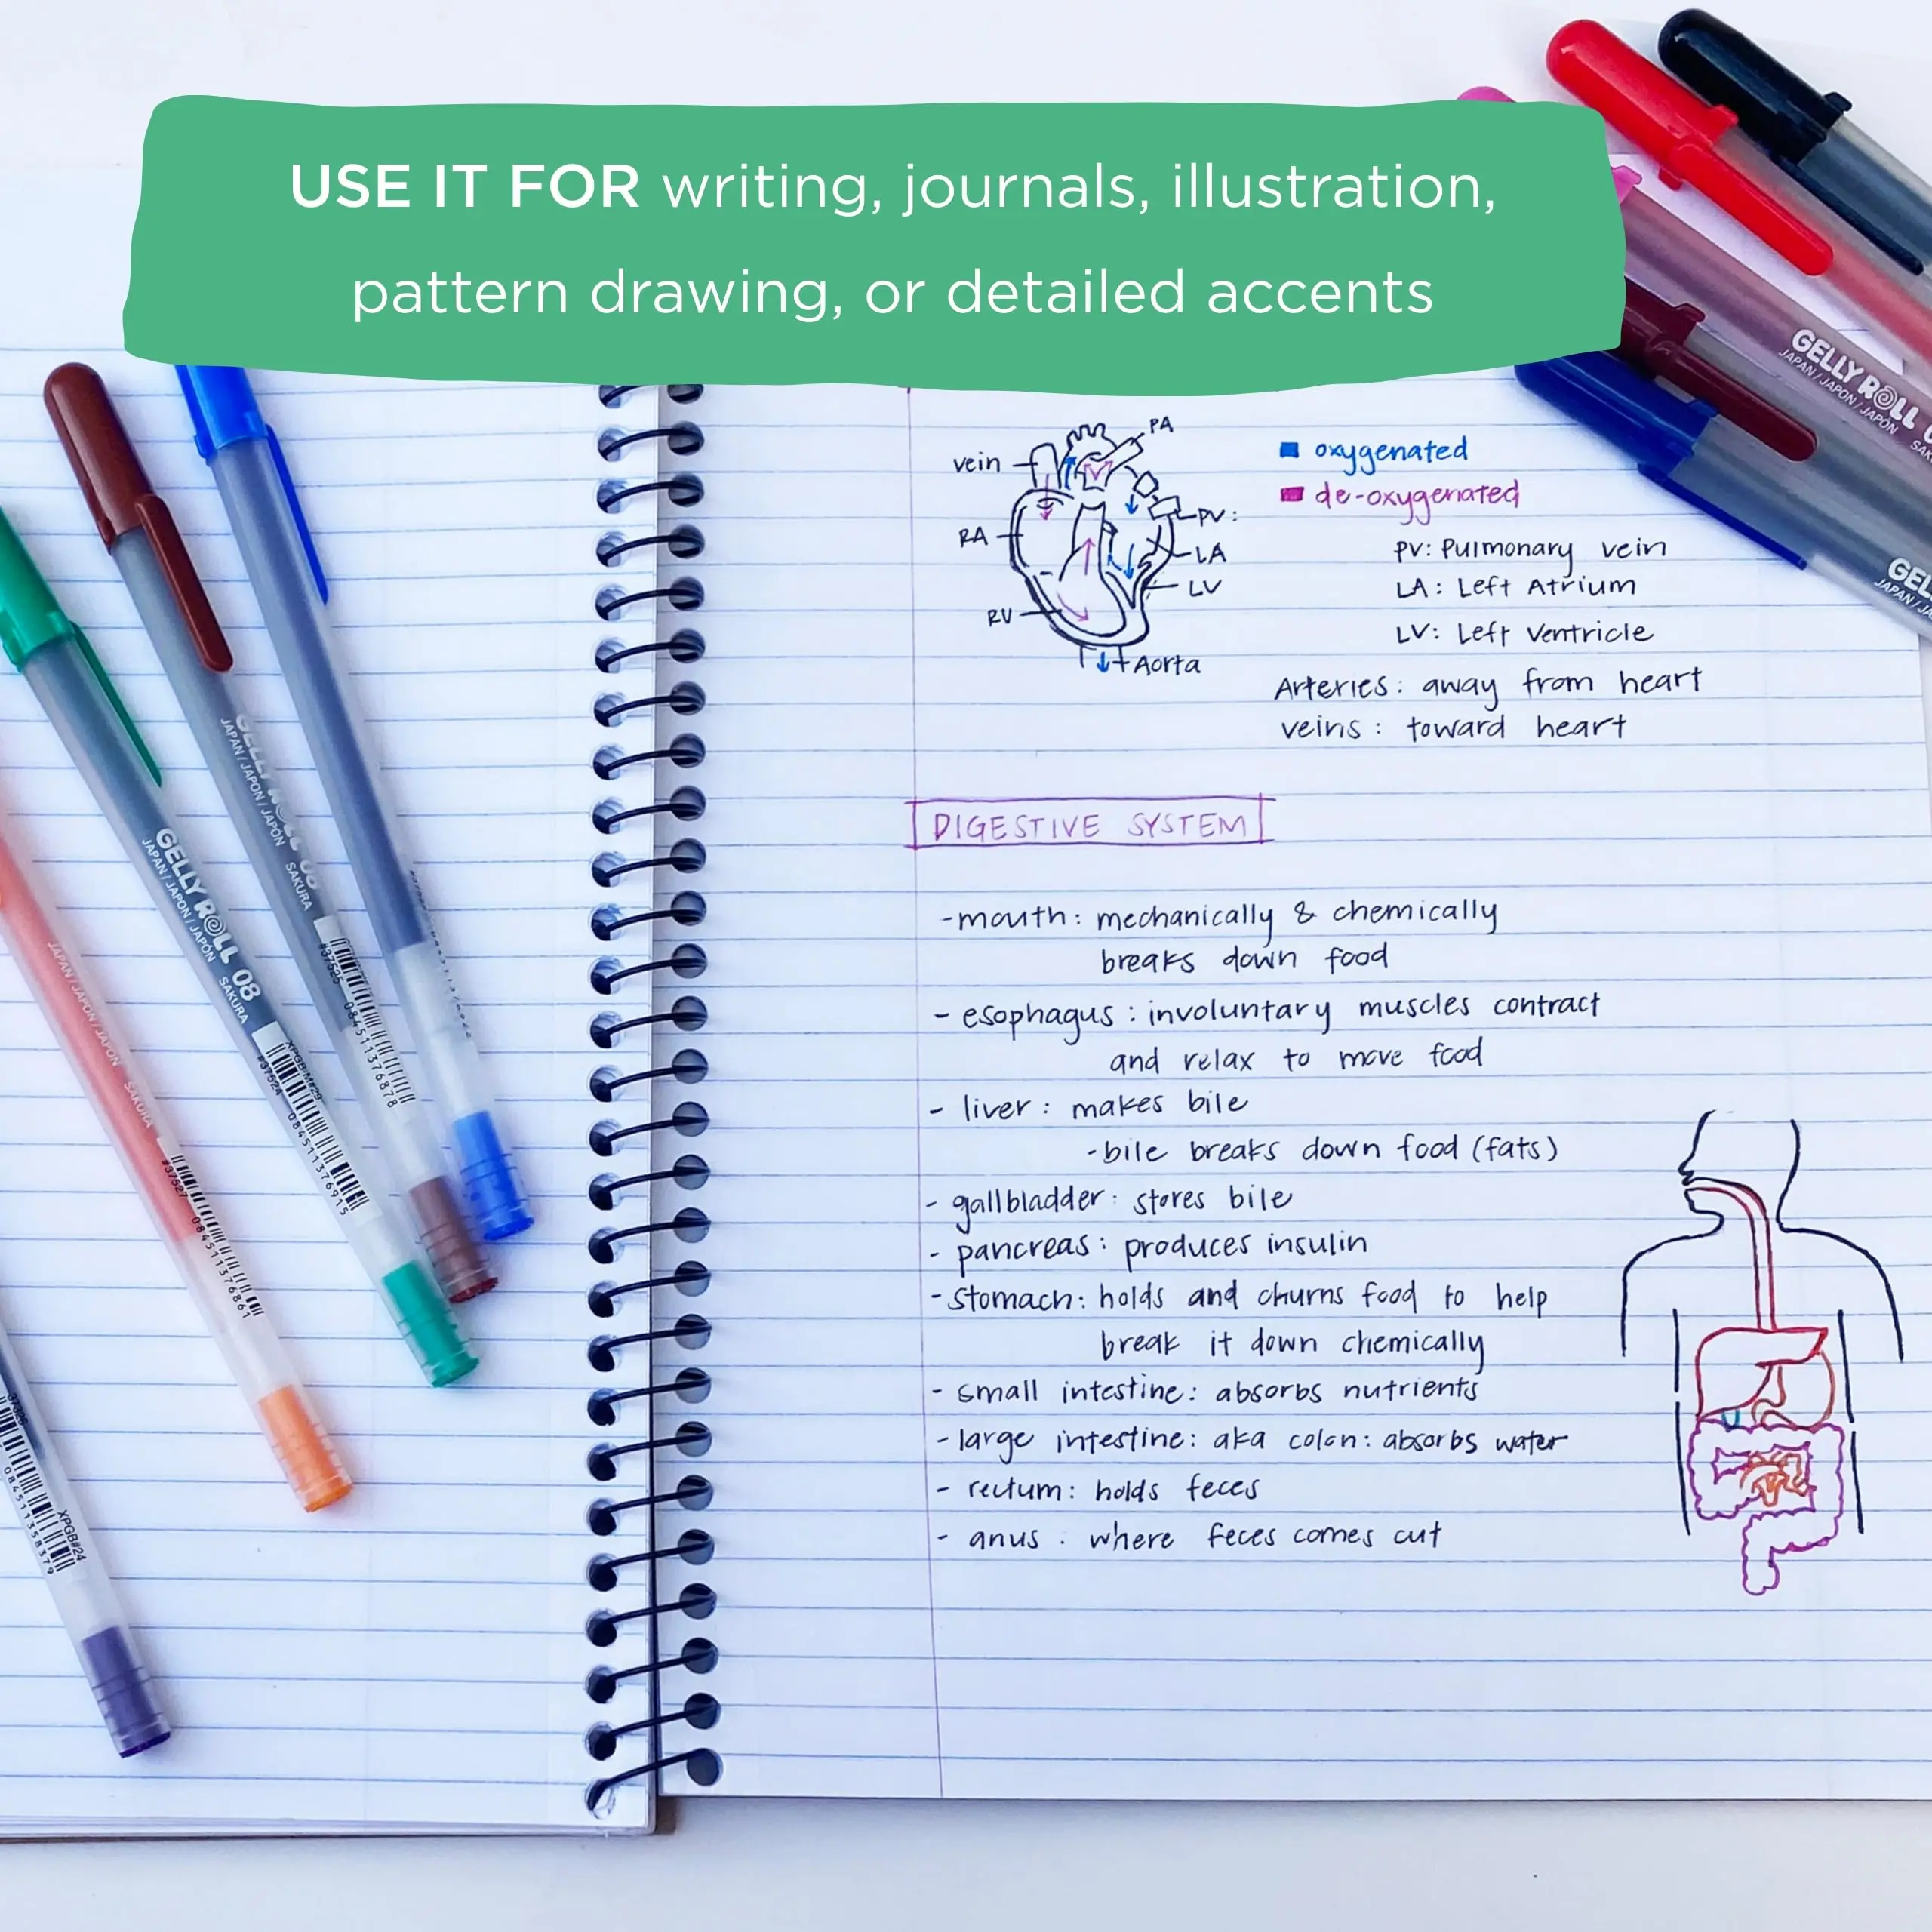 USE IT FOR writing, journals, illustration,
pattern drawing, or detailed accents
PA
vein
RA
PV:
LA
LV
RV
Aorta
oxygenated
de-oxygenated
PV: Pulmonary vein
LA: Left Atrium
LV: Left Ventricle
Arteries: away from heart
veins: toward heart
DIGESTIVE SYSTEM
-mouth: mechanically & chemically
breaks down food
- esophagus: involuntary muscles contract
and relax to move food
- liver: makes bile
-bile breaks down food (fats)
- gallbladder: stores bile
- pancreas: produces insulin
-stomach: holds and churns food to help
break it down chemically
- small intestine: absorbs nutrients
- large intestine: aka colon: absorbs water
- rectum: holds feces
- anus: where feces comes out
GELLY ROLL
JAPAN/JAPON/JAPÓN
GELLY ROLL 08
JAPAN/JAPON/JAPÓN SAKURA
#37525 084511376878
GELLY ROLL 08
JAPAN/JAPON/JAPÓN SAKURA
XPGB-M#29
#37524 084511376915
JAPAN/JAPON/JAPÓN SAKURA
#37527 084511376861
XPGB#24
084511358379